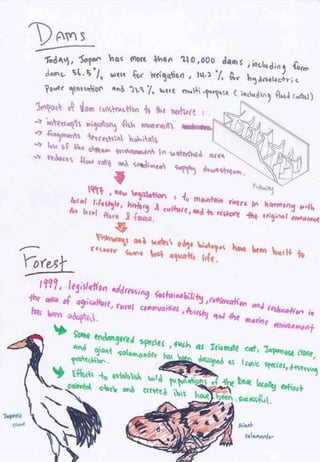 DAMS
Today, Japan has more than 210,000 dams, including farm
dams. 56.5% were for irrigation, 14.2% for hydroelectric
power generation and 21.3% were multi-purpose (including flood control)
Impact of dam construction to the nature:
→ interrupts migratory fish movements
→ fragments terrestrial habitats
→ loss of the stream environment in watershed area
→ reduces flow rate and sediment supply downstream.
Fishway
1997, new legislation: to maintain rivers in harmony with
local lifestyle, history & culture, and to restore the original environment
for local flora & fauna.
Fishways and water's edge biotopes have been built to
recover some lost aquatic life.
Forest
1999, legislation addressing sustainability, conservation and restoration in
the area of agriculture, rural communities, forestry and the marine environment
has been adopted.
Some endangered species, such as Iriomote cat, Japanese crane,
and giant salamander has been designed as iconic species, deserving
protection.
Efforts to establish wild populations of the locally extinct
oriental stork and crested ibis have been successful.
Japanese
crane
Giant
salamander